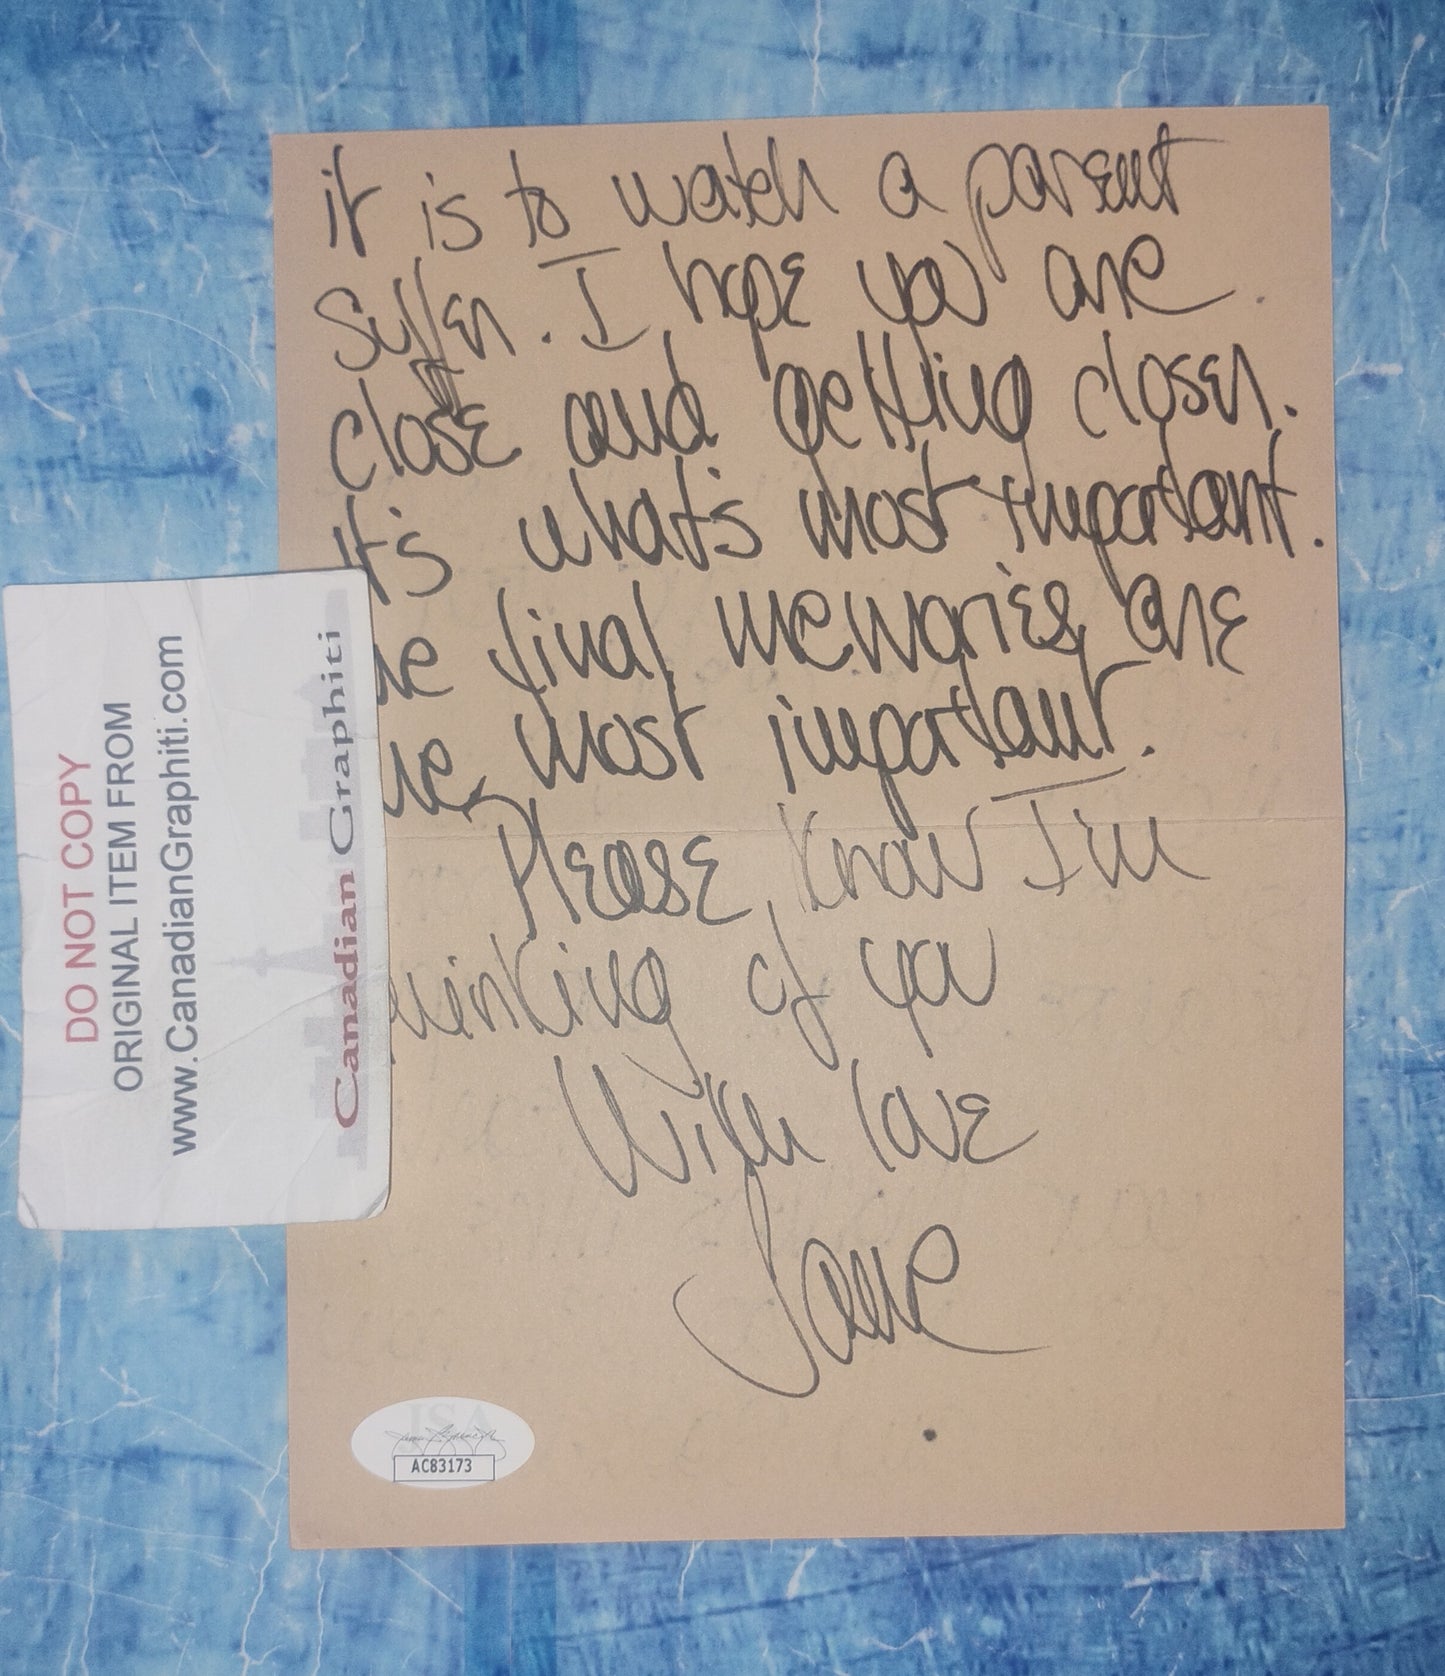 it is to watch a parent
suffer. I hope you are
close and getting closer.
It's what's most important.
he final memories are
he most important.
Please know I'm
hinking of you
With love
Jane
DO NOT COPY
ORIGINAL ITEM FROM
www.CanadianGraphiti.com
Canadian Graphiti
JSA
AC83173